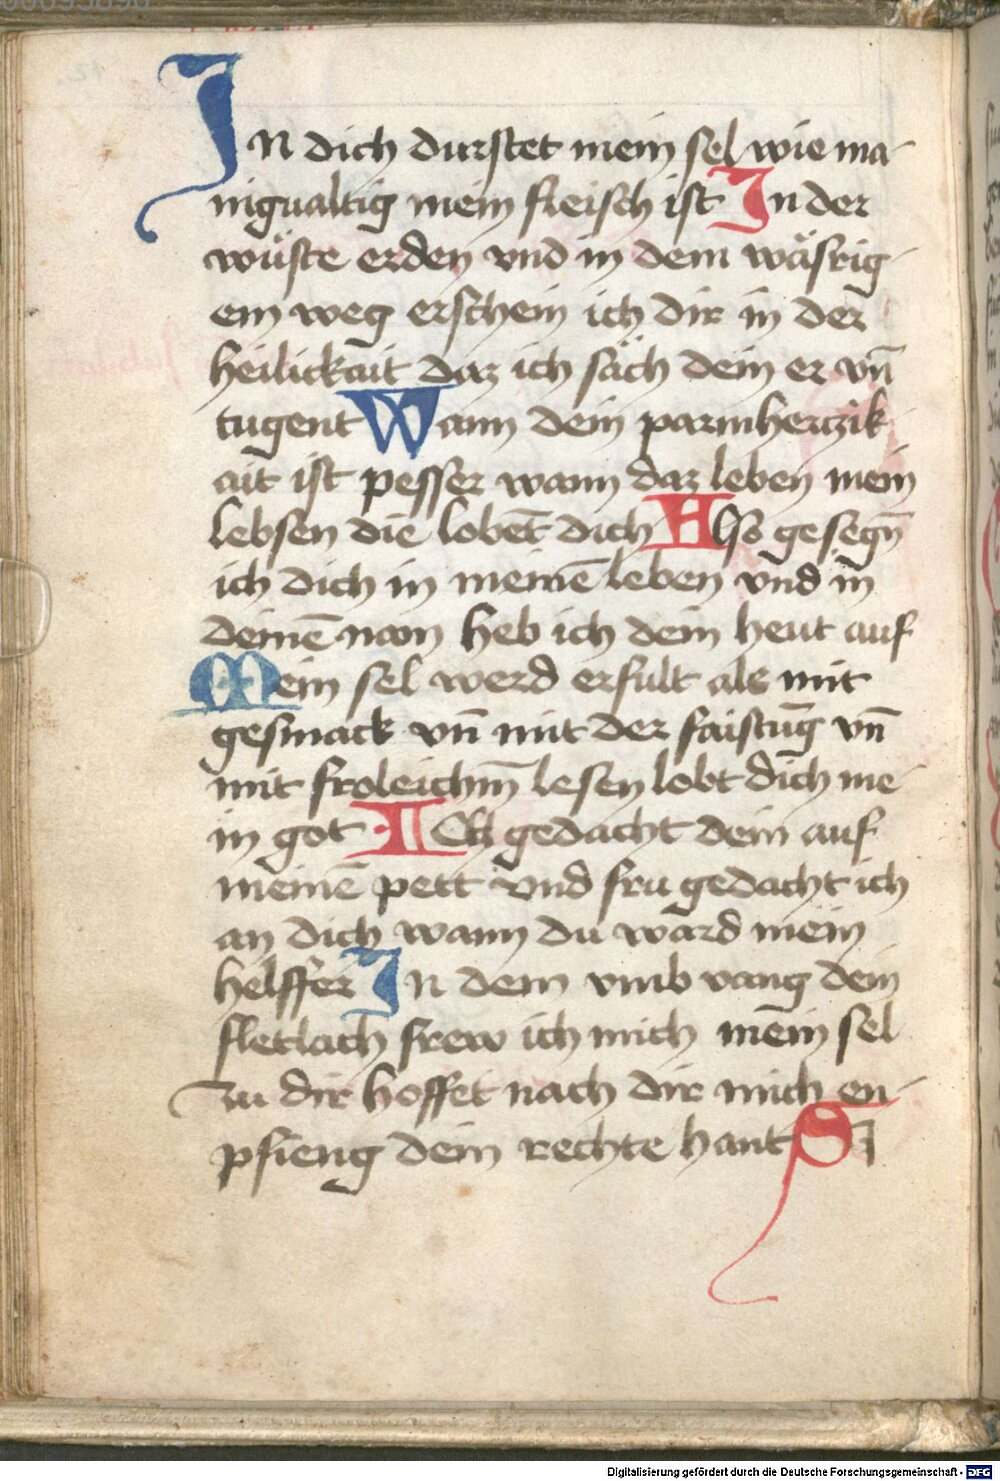 In dich durstet mein sel wie ma-
nigualtig mein fleisch ist In der
wüste erden vnd in dem wäsrig-
em weg erschein ich dir in der
heilickait daz ich säch dein er vn̄
tugent Wann dein parmherczik-
ait ist pesser wann daz leben mein
lebsen die lobēt dich Also gesegn̄
ich dich in meinē leben vnd in
deinē nam heb ich dein hent auf
Mein sel werd erfult als mit
gesmack vn̄ mit der faistūg vn̄
mit froleichn̄ lesen lobt dich me-
in got Ich gedacht dein auf
meinē pett vnd fru gedacht ich
an dich wann du ward mein
helffer In dem vmb vang dein
fletlach frew ich mich mein sel
zu dir hoffet nach dir mich en-
pfieng dein rechte hant Si
Digitalisierung gefördert durch die Deutsche Forschungsgemeinschaft - DFG